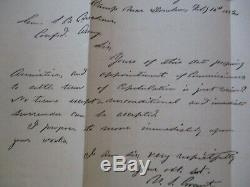 Camp near Donelson, Feby 16th 1862
Gen. S. B. Buckner
Confed. Army
Sir,
Yours of this date proposing
Armistice, and appointment of Commissioners
to settle terms of Capitulation is just received.
No terms except unconditional and immediate
Surrender can be accepted.
I propose to move immediately upon
your works.
I am, Sir, very respectfully
your obt. svt.
U. S. Grant